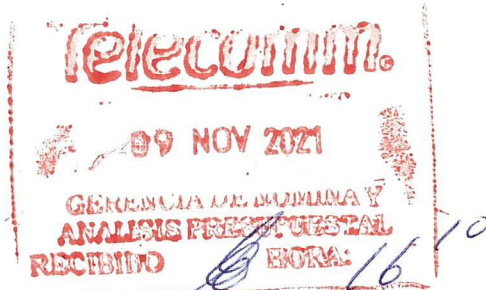 Telecomm®
09 NOV 2021
GERENCIA DE NOMINA Y
ANALISIS PRESUPUESTAL
RECIBIDO HORA: 16 10